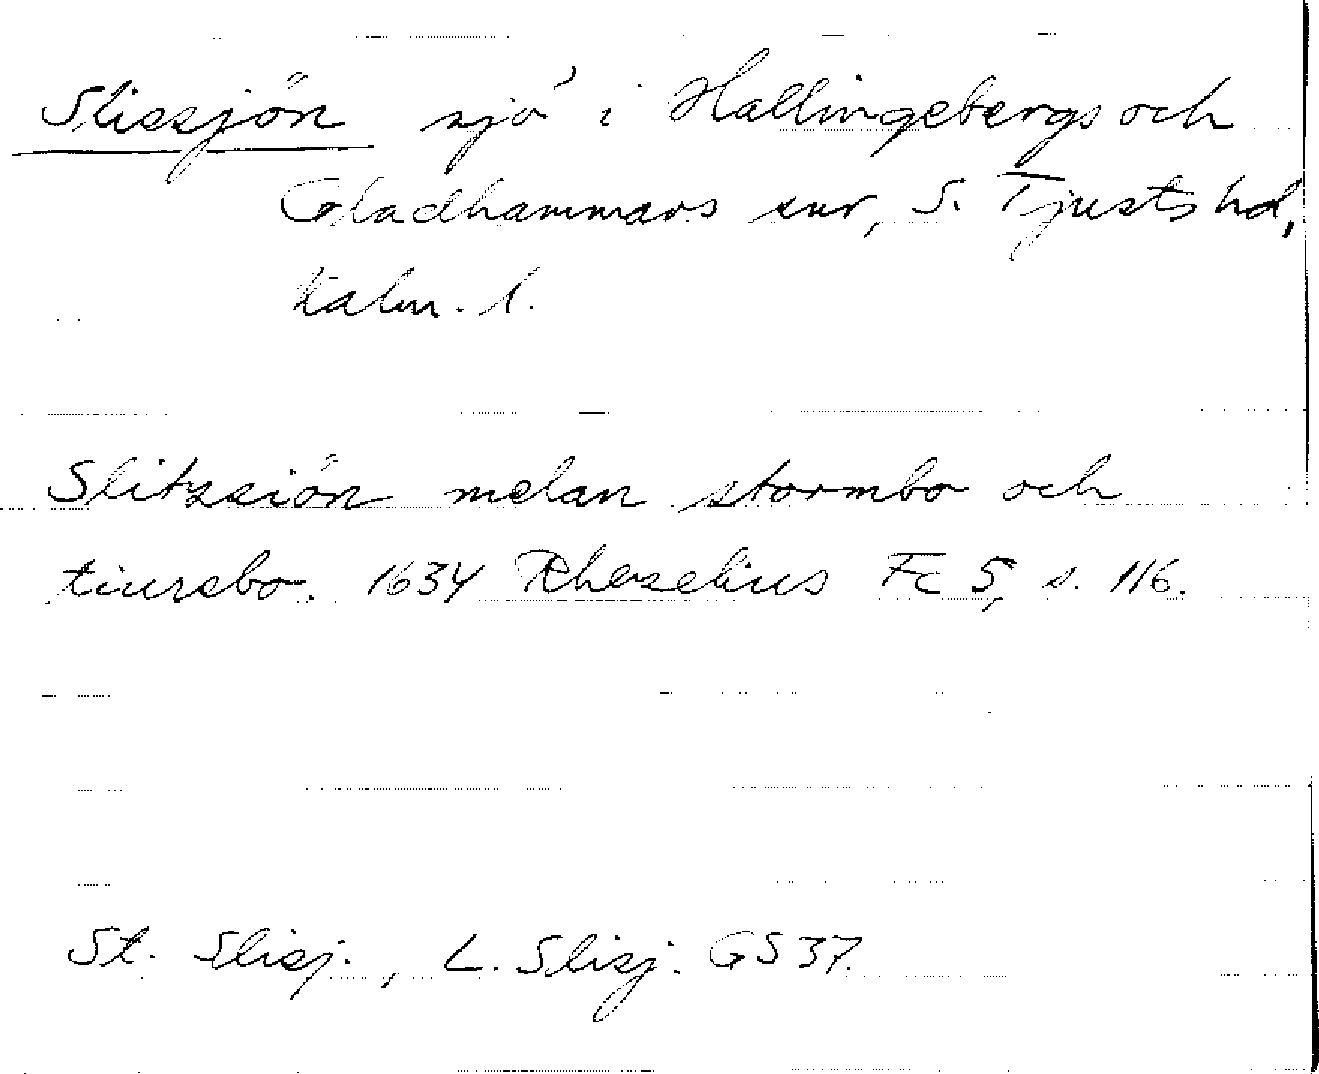 Slissjön sjö i Hallingebergs och
Gladhammars snr, S. Tjusts hd,
Kalm. l.
Slitzsiön melan stormbo och
tiursbo. 1634 Rhezelius Fc 5, s. 116.
St. Slisj., L. Slisj. GS 37.